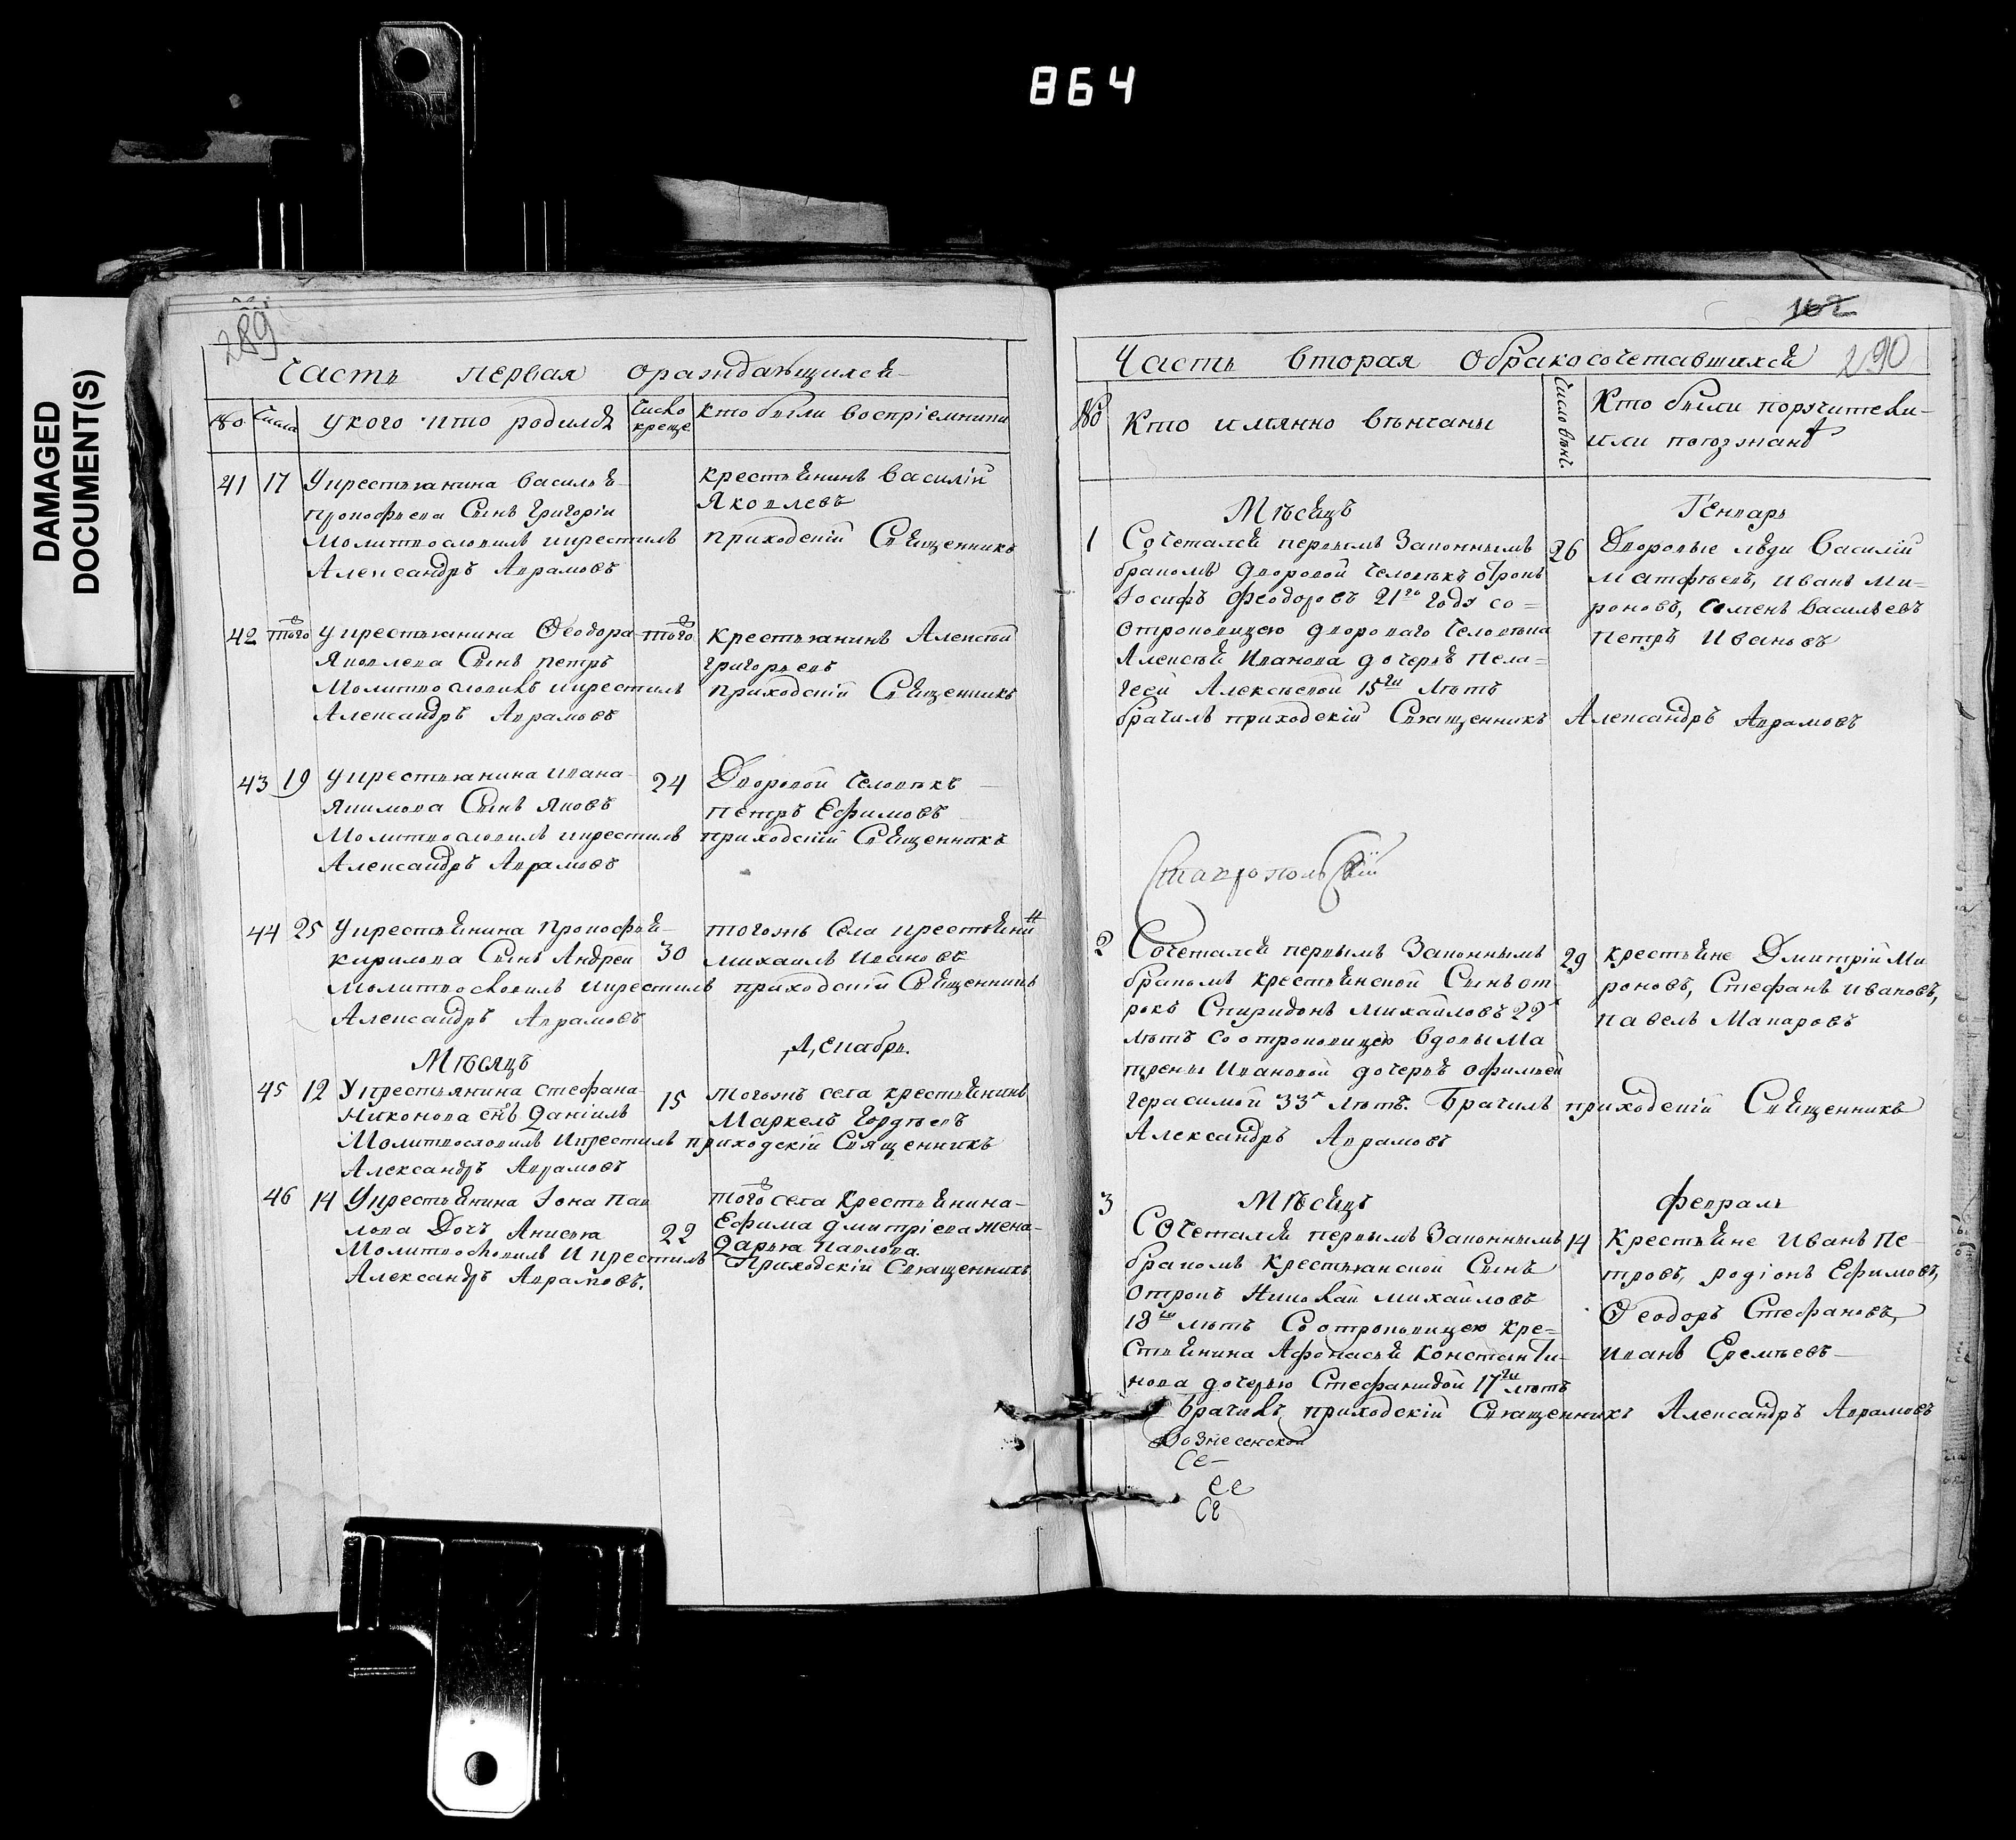 864
DAMAGED
DOCUMENT(S)
289
Часть первая ораждающихся
№ Числа У кого кто родился Число креще Кто были воспріемники
41 17 У крестьянина Василья
Прокофьева Сынъ Григорій
Молитвословилъ и крестилъ
Александръ Аврамовъ
крестьянинъ Василій
Яковлевъ
приходскій Священникъ
42 того У крестьянина Ѳеодора того
Яковлева Сынъ Петръ
Молитвословилъ и крестилъ
Александръ Аврамовъ
крестьянинъ Алексѣй
Григорьевъ
приходскій Священникъ
43 19 У крестьянина Ивана 24
Якимова Сынъ Яковъ
Молитвословилъ и крестилъ
Александръ Аврамовъ
Дворовой Человѣкъ
Петръ Ефимовъ
приходскій Священникъ
44 25 У крестьянина Прокофья
Кирилова Сынъ Андрей 30
Молитвословилъ и крестилъ
Александръ Аврамовъ
тогожъ Села крестьянинъ
Михаилъ Ивановъ
приходскій Священникъ
Мѣсяцъ Декабрь.
45 12 У крестьянина Стефана 15
Никонова снъ Даніилъ
Молитвословилъ и крестилъ
Александръ Аврамовъ
тогожъ села крестьянинъ
Маркелъ Гордѣевъ
приходскій Священникъ
46 14 У крестьянина Іона Пав
лова Дочь Анисья 22
Молитвословилъ и крестилъ
Александръ Аврамовъ.
того села крестьянина
Ефима Дмитріева жена
Дарья Павлова.
Приходскій Священникъ
162
290
Часть вторая Обракосочетавшихся
№ Кто имянно вѣнчаны Число вѣнч. Кто были поручители
или поѣзжанѣ
Мѣсяцъ Генварь
1 Сочетался первымъ Законнымъ 26
бракомъ Дворовой Человѣкъ отрокъ
Іосифъ Ѳеодоровъ 21го году со=
отроковицею дворового Человѣка
Алексѣя Иванова дочерью Пела=
геей Алексѣевой 15ти Лѣтъ
брачилъ приходскій Священникъ Александръ Аврамовъ
Дворовые люди Василій
Матфѣевъ, Иванъ Ми-
роновъ, Семенъ Васильевъ
Петръ Ивановъ
Ставропольскій
2 Сочетался первымъ Законнымъ 29
бракомъ крестьянской Сынъ от
рокъ Спиридонъ Михайловъ 22х
лѣтъ со отроковицею вдовы Ма
трены Ивановой дочерью Офимьей
Герасимой 33х лѣтъ. Брачилъ приходскій Священникъ
Александръ Аврамовъ
крестьяне Дмитрій Ми
роновъ, Стефанъ Ивановъ,
Павелъ Макаровъ
3 Мѣсяцъ Февраль
Сочетался первымъ Законнымъ 14
бракомъ Крестьянской Сынъ
Отрокъ Николай Михайловъ
18ти лѣтъ Со отроковицею кре=
стьянина Афонасья Константи-
нова дочерью Стефанидой 17ти лѣтъ
Брачилъ приходскій Священникъ Александръ Аврамовъ
Крестьяне Иванъ Пе-
тровъ, Родіонъ Ефимовъ,
Ѳеодоръ Стефановъ,
Иванъ Еремѣевъ
Вознесенской
Се-
се
Се